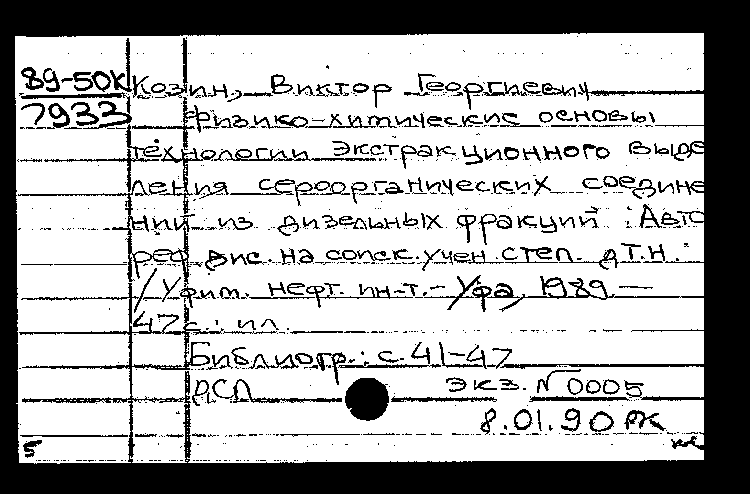 89-50К Козин, Виктор Георгиевич
7933 Физико-химические основы
технологии экстракционного выде
ления сероорганических соедине
ний из дизельных фракций : Авто
реф. дис. на соиск. учен степ. д.т.н.
/ Уфим. нефт. ин-т. - Уфа, 1989. —
47 с. : ил.
Библиогр.: с. 41-47
ДСП экз. № 0005
8.01.90 РК
5